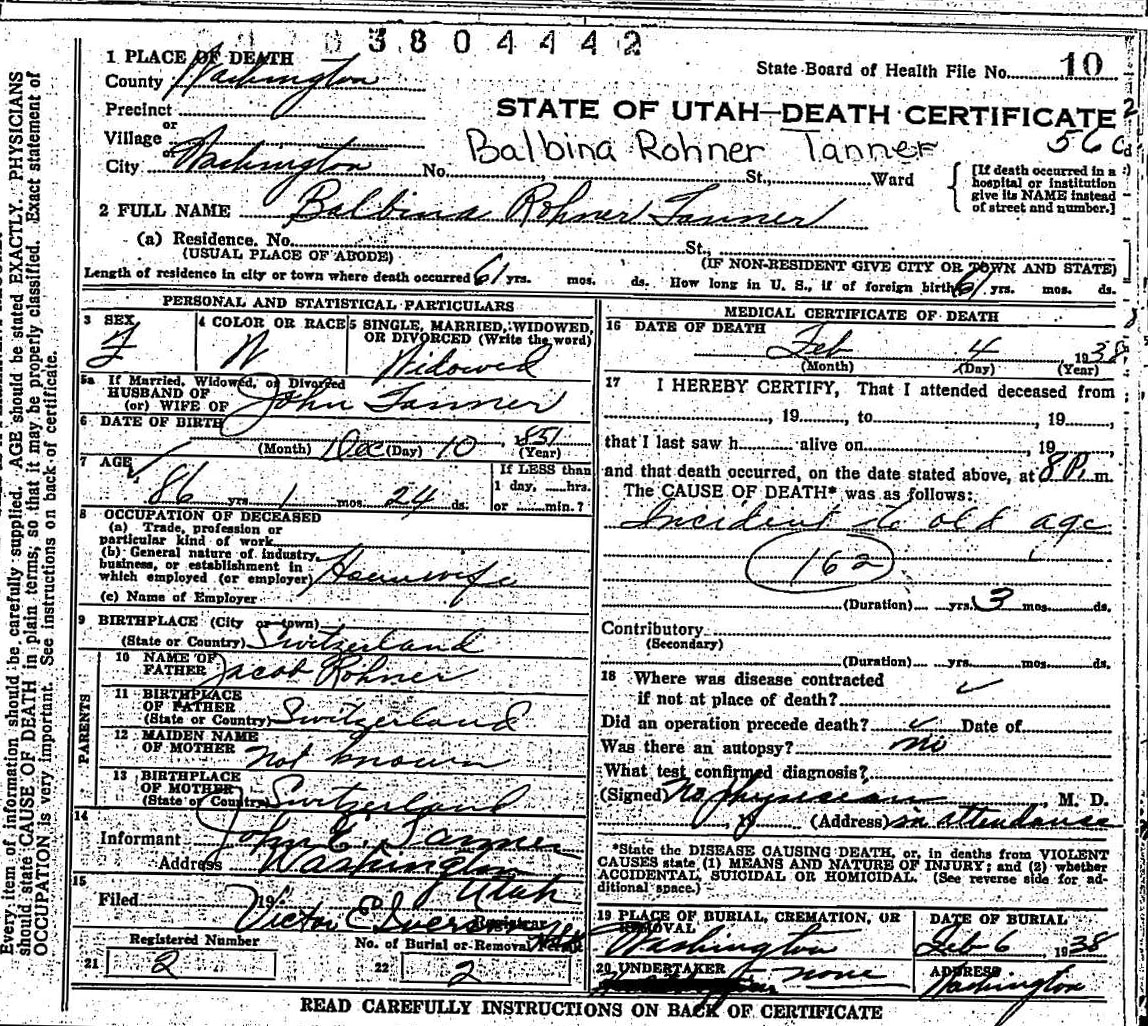 3804442
1 PLACE OF DEATH
County Washington
State Board of Health File No. 10
Precinct
or
Village
or
City Washington No. St., Ward
STATE OF UTAH—DEATH CERTIFICATE
Balbina Rohner Tanner
[If death occurred in a hospital or institution give its NAME instead of street and number.]
2 FULL NAME Balbina Rohner Tanner
(a) Residence. No. St.,
(USUAL PLACE OF ABODE) (IF NON-RESIDENT GIVE CITY OR TOWN AND STATE)
Length of residence in city or town where death occurred 61 yrs. mos. ds. How long in U. S., if of foreign birth 61 yrs. mos. ds.
PERSONAL AND STATISTICAL PARTICULARS
3 SEX F
4 COLOR OR RACE W
5 SINGLE, MARRIED, WIDOWED, OR DIVORCED (Write the word) Widowed
5a If Married, Widowed, or Divorced
HUSBAND OF
(or) WIFE OF John Tanner
6 DATE OF BIRTH
(Month) Dec (Day) 10, 1851 (Year)
7 AGE
86 yrs. 1 mos. 24 ds.
If LESS than 1 day, hrs. or min.?
8 OCCUPATION OF DECEASED
(a) Trade, profession or particular kind of work
(b) General nature of industry, business, or establishment in which employed (or employer) Housewife
(c) Name of Employer
9 BIRTHPLACE (City or town)
(State or Country) Switzerland
PARENTS
10 NAME OF FATHER Jacob Rohner
11 BIRTHPLACE OF FATHER (State or Country) Switzerland
12 MAIDEN NAME OF MOTHER Not known
13 BIRTHPLACE OF MOTHER (State or Country) Switzerland
14
Informant John E. Tanner
Address Washington
Utah
15
Filed 19
Victor E Iverson
Registrar
Registered Number
No. of Burial or Removal
21 2
22 2
MEDICAL CERTIFICATE OF DEATH
16 DATE OF DEATH
Feb 4 1938
(Month) (Day) (Year)
17 I HEREBY CERTIFY, That I attended deceased from
, 19 , to , 19 ,
that I last saw h alive on , 19
and that death occurred, on the date stated above, at 8 P. m.
The CAUSE OF DEATH* was as follows:
Incident to old age
162
(Duration) yrs. 3 mos. ds.
Contributory
(Secondary)
(Duration) yrs. mos. ds.
18 Where was disease contracted
if not at place of death?
Did an operation precede death? Date of
Was there an autopsy? no
What test confirmed diagnosis?
(Signed) No physician, M. D.
, 19 (Address) in attendance
*State the DISEASE CAUSING DEATH, or, in deaths from VIOLENT
CAUSES state (1) MEANS AND NATURE OF INJURY; and (2) whether
ACCIDENTAL, SUICIDAL OR HOMICIDAL. (See reverse side for additional space.)
19 PLACE OF BURIAL, CREMATION, OR REMOVAL
Washington
DATE OF BURIAL
Feb 6, 1938
20 UNDERTAKER none
ADDRESS
Washington
READ CAREFULLY INSTRUCTIONS ON BACK OF CERTIFICATE
Every item of information should be carefully supplied. AGE should be stated EXACTLY. PHYSICIANS
should state CAUSE OF DEATH in plain terms, so that it may be properly classified. Exact statement of
OCCUPATION is very important. See instructions on back of certificate.